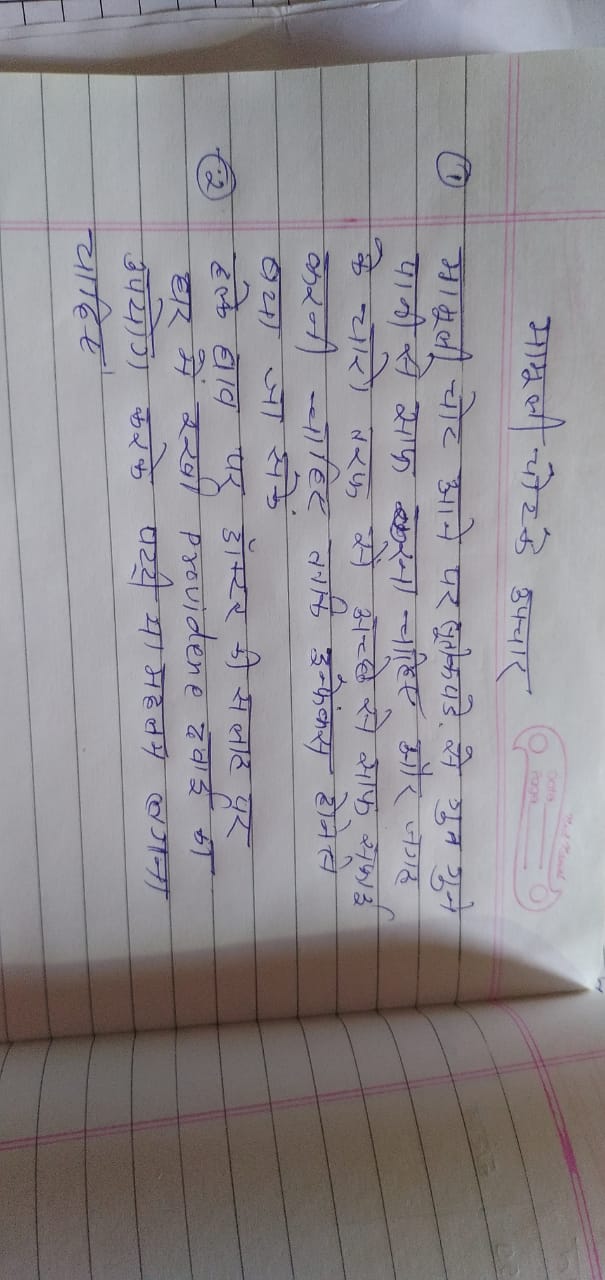 मामूली चोट के उपचार
Date
Page
① मामूली चोट आने पर से गुन गुने
पानी से साफ करना चाहिए और जगह
के चारो तरफ से अच्छे से साफ सफाई
करनी चाहिए ताकि इन्फेक्स होनेस
बचा जा सके
② हल्के घाव पर डॉक्टर की सलाह पर
घर मे रखी Providene दवाई का
उपयोग करके पट्टी या मलहम लगाना
चाहिए